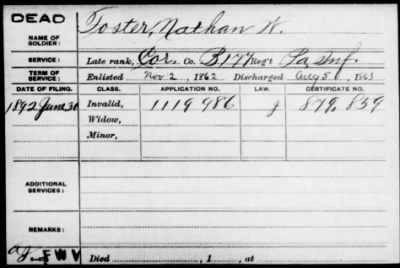 DEAD
NAME OF SOLDIER: Foster, Nathan W.
SERVICE: Late rank, Cor. Co. B 177 Reg't Pa Inf.
TERM OF SERVICE: Enlisted Nov 2, 1862 Discharged Aug 5, 1863
DATE OF FILING. CLASS. APPLICATION NO. LAW. CERTIFICATE NO.
1892 June 30 Invalid, 1119 986 J 879,839
Widow,
Minor,
ADDITIONAL SERVICES:
REMARKS:
F W V Died , 1 , at